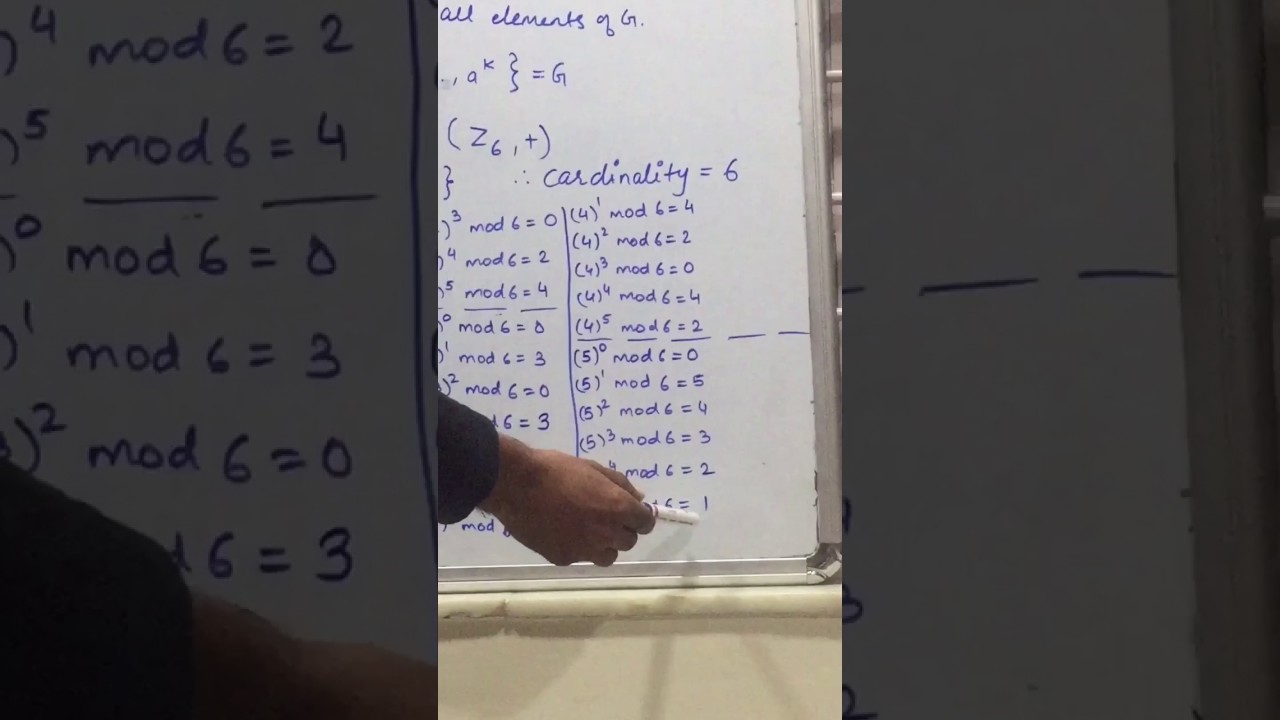 all elements of G.
, aᵏ } = G
(Z₆, +)
} ∴ cardinality = 6
)³ mod 6 = 0
)⁴ mod 6 = 2
)⁵ mod 6 = 4
)⁰ mod 6 = 0
)¹ mod 6 = 3
)² mod 6 = 0
6 = 3
mod
(4)¹ mod 6 = 4
(4)² mod 6 = 2
(4)³ mod 6 = 0
(4)⁴ mod 6 = 4
(4)⁵ mod 6 = 2
(5)⁰ mod 6 = 0
(5)¹ mod 6 = 5
(5)² mod 6 = 4
(5)³ mod 6 = 3
⁴ mod 6 = 2
6 = 1